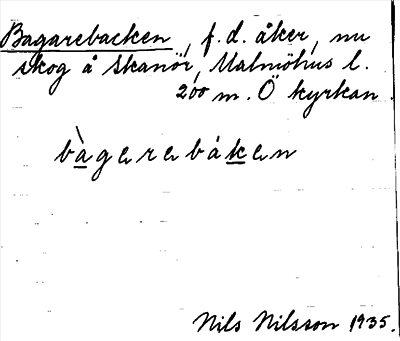 Bagarebacken, f. d. åker, nu
skog å Skanör, Malmöhus l.
200 m. Ö kyrkan.
bàgɐrɐbákɐn
Nils Nilsson 1935.